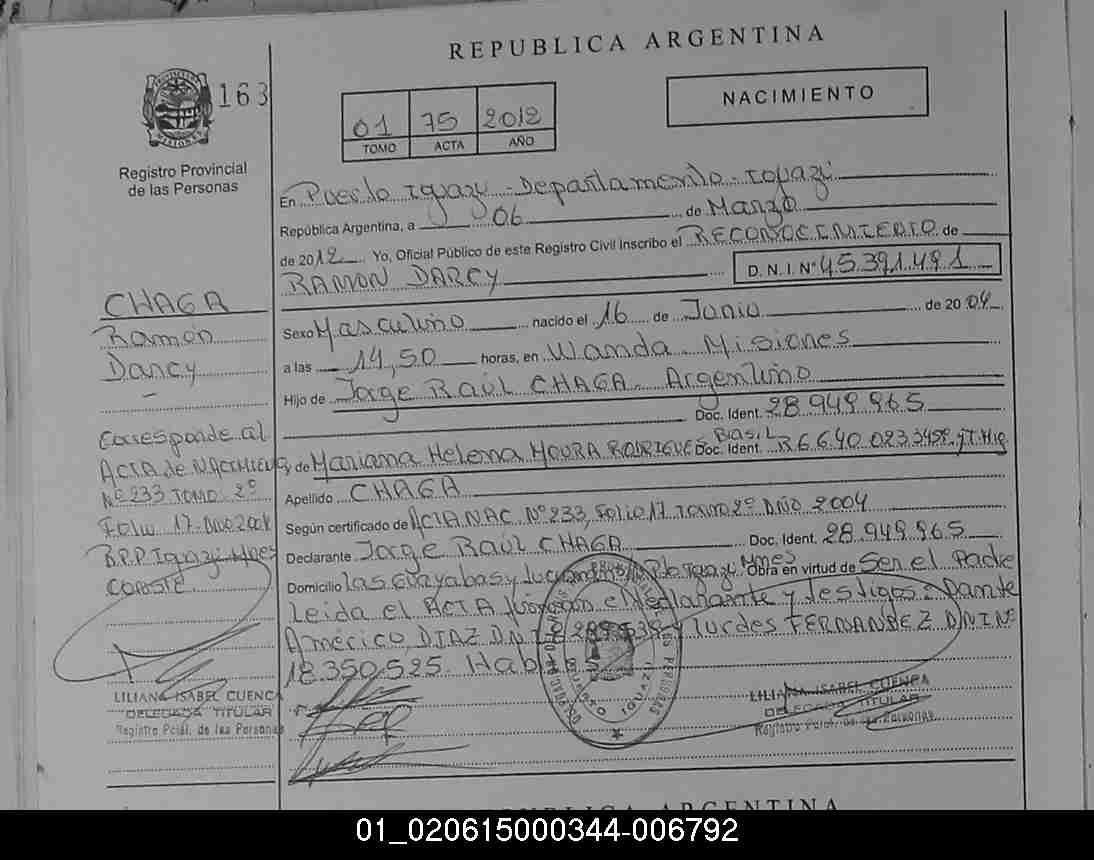 REPUBLICA ARGENTINA
163
PROVINCIA MISIONES
Registro Provincial
de las Personas
01 75 2012
TOMO ACTA AÑO
NACIMIENTO
En Puerto Iguazú - Departamento - Iguazú
República Argentina, a 06 de Marzo
de 2012 Yo, Oficial Público de este Registro Civil inscribo el RECONOCIMIENTO de
RAMON DARCY D. N. I. N° 45.391.491
Sexo Masculino nacido el 16 de Junio de 2004
a las 14,50 horas, en Wanda - Misiones
Hijo de Jorge Raúl CHAGA - Argentino
Doc. Ident. 28.949.965
y de Mariana Helena MOURA RODRIGUES Brasil Doc. Ident.
Apellido CHAGA
Según certificado de ACTA NAC. Nº 233, Folio 17 Tomo 2º AÑO 2004
Declarante Jorge Raúl CHAGA Doc. Ident. 28.949.965
Domicilio Las Guayabas y Mnes Obra en virtud de Ser el Padre
Leida el ACTA firman el Declarante y testigos: Dante
Américo, DIAZ DNI y Lurdes FERNANDEZ DNI Nº
18.350.525.
CHAGA
Ramón
Darcy
Corresponde al
ACTA de NACIMIENTO
Nº 233 TOMO 2º
Folio 17 - Año 2004
R.P.P. Iguazú Mnes
Conste
LILIANA ISABEL CUENCA
DELEGADA TITULAR
Registro Pcial. de las Personas
LILIANA ISABEL CUENCA
DELEGADA TITULAR
Registro Pcial. de las Personas
REPUBLICA ARGENTINA
01_020615000344-006792